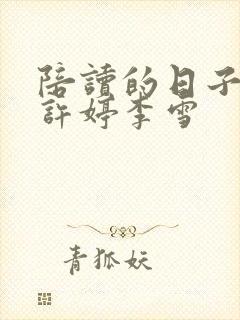 陪讀的日子
許婷李雪
青狐妖